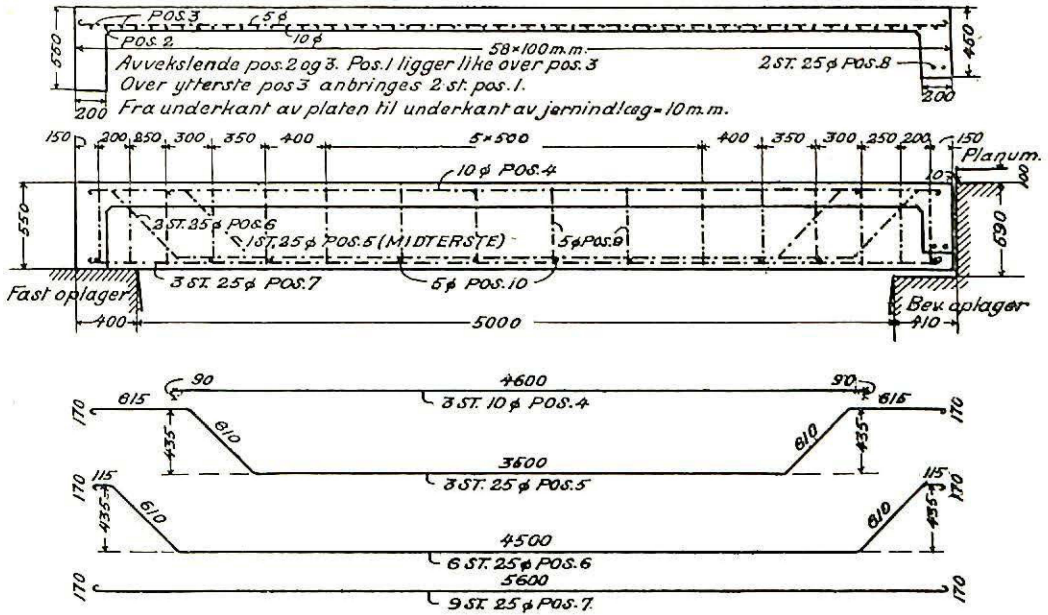 POS.3 5φ
POS.2 10φ
550 58×100 m.m. 460
Avvekslende pos. 2 og 3. Pos. 1 ligger like over pos 3
2 ST. 25φ POS.8
Over ytterste pos 3 anbringes 2 st. pos. 1.
200 Fra underkant av platen til underkant av jernindlæg = 10 m.m. 200
150 200 250 300 350 400 5×500 400 350 300 250 200 150
Planum.
10 φ POS.4 10 100
550 2 ST. 25φ POS.6 690
1 ST. 25φ POS.5 (MIDTERSTE) 5φ POS.9
3 ST. 25φ POS.7 5φ POS.10
Fast oplager Bev. oplager
400 5000 410
90 4600 90
615 3 ST. 10φ POS.4 615
170 435 610 610 435 170
3600
3 ST. 25φ POS.5
115 115
170 435 610 610 435 170
4500
6 ST. 25φ POS.6
5600
170 9 ST. 25φ POS.7. 170